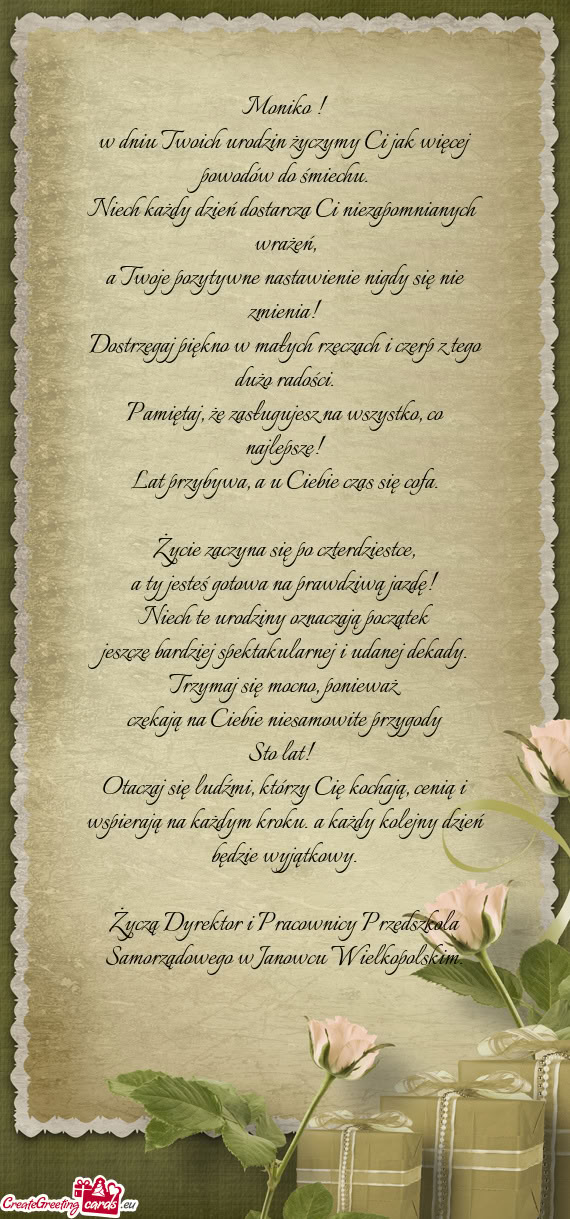 Moniko !
w dniu Twoich urodzin życzymy Ci jak więcej
powodów do śmiechu.
Niech każdy dzień dostarcza Ci niezapomnianych
wrażeń,
a Twoje pozytywne nastawienie nigdy się nie
zmienia!
Dostrzegaj piękno w małych rzeczach i czerp z tego
dużo radości.
Pamiętaj, że zasługujesz na wszystko, co
najlepsze!
Lat przybywa, a u Ciebie czas się cofa.
Życie zaczyna się po czterdziestce,
a ty jesteś gotowa na prawdziwą jazdę!
Niech te urodziny oznaczają początek
jeszcze bardziej spektakularnej i udanej dekady.
Trzymaj się mocno, ponieważ
czekają na Ciebie niesamowite przygody
Sto lat!
Otaczaj się ludźmi, którzy Cię kochają, cenią i
wspierają na każdym kroku. a każdy kolejny dzień
będzie wyjątkowy.
Życzą Dyrektor i Pracownicy Przedszkola
Samorządowego w Janowcu Wielkopolskim.
CreateGreetingcards.eu